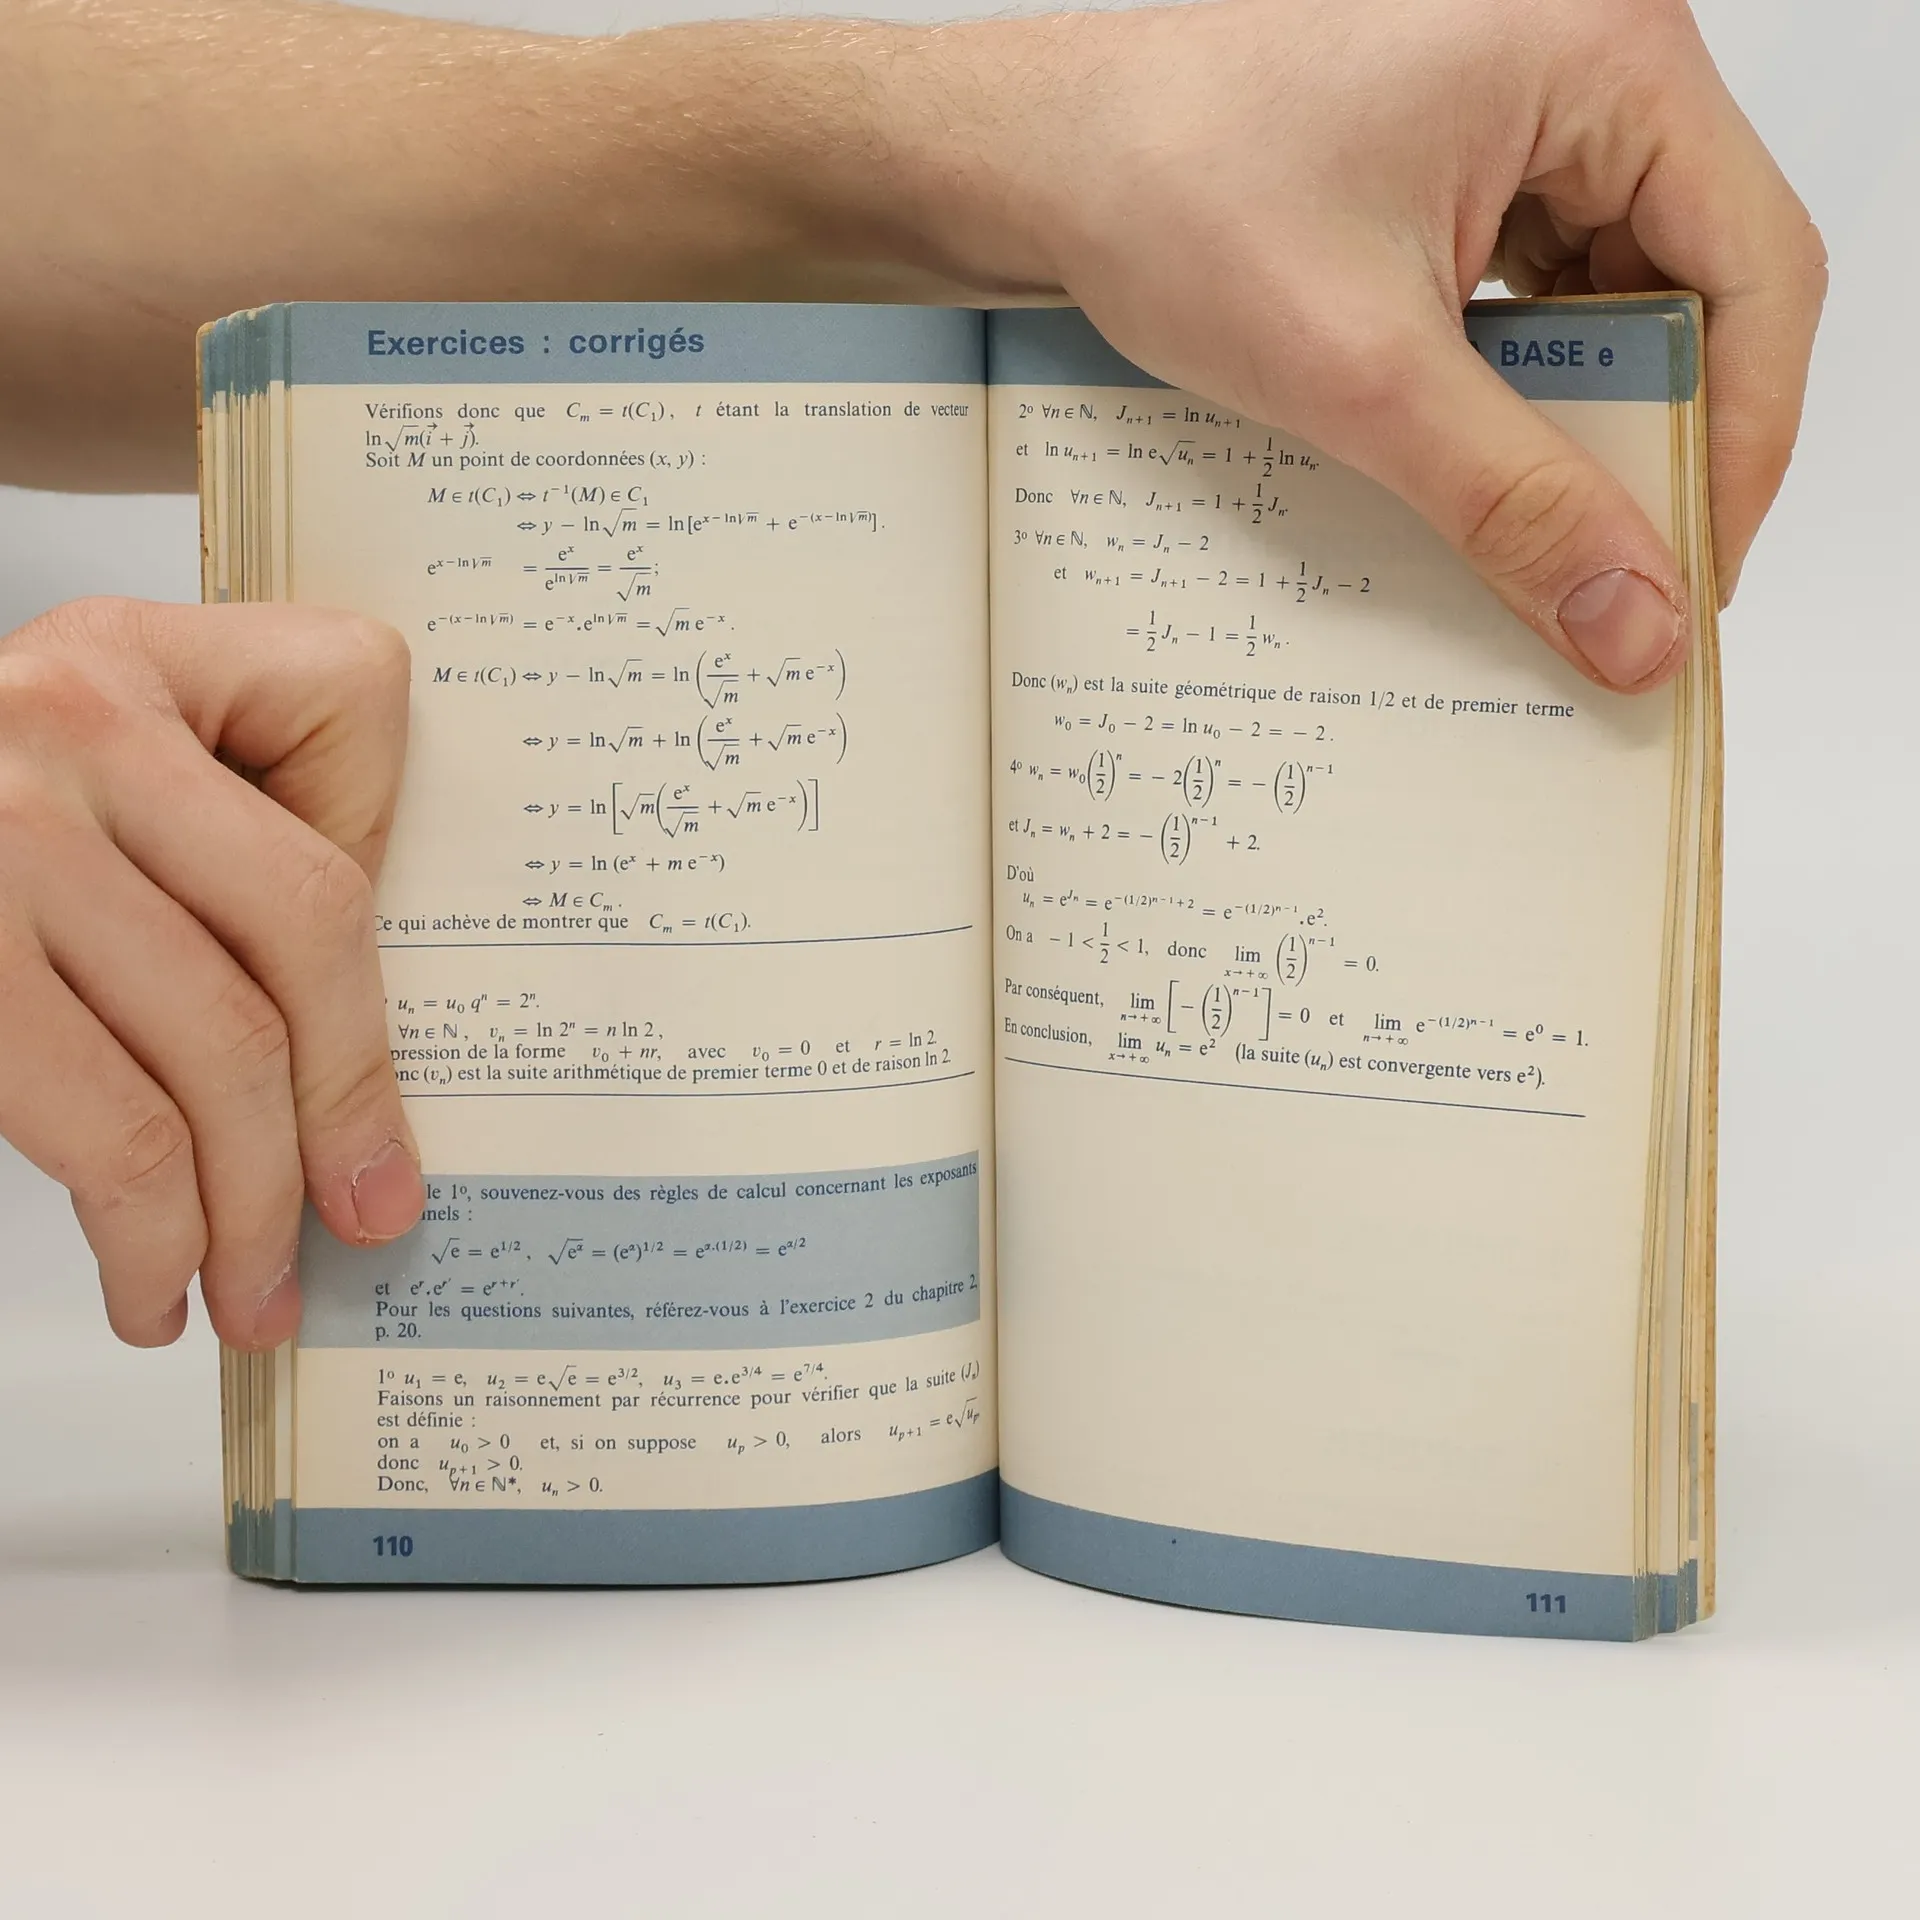 Exercices : corrigés
Vérifions donc que C_m = t(C_1), t étant la translation de vecteur
ln √m(i⃗ + j⃗).
Soit M un point de coordonnées (x, y) :
M ∈ t(C_1) ⇔ t^{-1}(M) ∈ C_1
⇔ y − ln √m = ln [e^{x − ln √m} + e^{−(x − ln √m)}].
e^{x − ln √m} = e^x / e^{ln √m} = e^x / √m;
e^{−(x − ln √m)} = e^{−x}.e^{ln √m} = √m e^{−x}.
M ∈ t(C_1) ⇔ y − ln √m = ln (e^x / √m + √m e^{−x})
⇔ y = ln √m + ln (e^x / √m + √m e^{−x})
⇔ y = ln [√m(e^x / √m + √m e^{−x})]
⇔ y = ln (e^x + m e^{−x})
⇔ M ∈ C_m.
Ce qui achève de montrer que C_m = t(C_1).
u_n = u_0 q^n = 2^n.
∀n ∈ ℕ, v_n = ln 2^n = n ln 2,
pression de la forme v_0 + nr, avec v_0 = 0 et r = ln 2.
onc (v_n) est la suite arithmétique de premier terme 0 et de raison ln 2.
le 1º, souvenez-vous des règles de calcul concernant les exposants
nels :
√e = e^{1/2}, √e^α = (e^α)^{1/2} = e^{α.(1/2)} = e^{α/2}
et e^r.e^{r'} = e^{r+r'}.
Pour les questions suivantes, référez-vous à l'exercice 2 du chapitre 2,
p. 20.
1º u_1 = e, u_2 = e√e = e^{3/2}, u_3 = e.e^{3/4} = e^{7/4}.
Faisons un raisonnement par récurrence pour vérifier que la suite (J_n)
est définie :
on a u_0 > 0 et, si on suppose u_p > 0, alors u_{p+1} = e√u_p,
donc u_{p+1} > 0.
Donc, ∀n ∈ ℕ*, u_n > 0.
110
BASE e
2º ∀n ∈ ℕ, J_{n+1} = ln u_{n+1}
et ln u_{n+1} = ln e√u_n = 1 + 1/2 ln u_n.
Donc ∀n ∈ ℕ, J_{n+1} = 1 + 1/2 J_n.
3º ∀n ∈ ℕ, w_n = J_n − 2
et w_{n+1} = J_{n+1} − 2 = 1 + 1/2 J_n − 2
= 1/2 J_n − 1 = 1/2 w_n.
Donc (w_n) est la suite géométrique de raison 1/2 et de premier terme
w_0 = J_0 − 2 = ln u_0 − 2 = − 2.
4º w_n = w_0(1/2)^n = − 2(1/2)^n = − (1/2)^{n−1}
et J_n = w_n + 2 = − (1/2)^{n−1} + 2.
D'où
u_n = e^{J_n} = e^{−(1/2)^{n−1}+2} = e^{−(1/2)^{n−1}}.e^2.
On a − 1 < 1/2 < 1, donc lim_{x→+∞} (1/2)^{n−1} = 0.
Par conséquent, lim_{n→+∞} [− (1/2)^{n−1}] = 0 et lim_{n→+∞} e^{−(1/2)^{n−1}} = e^0 = 1.
En conclusion, lim_{x→+∞} u_n = e^2 (la suite (u_n) est convergente vers e^2).
111